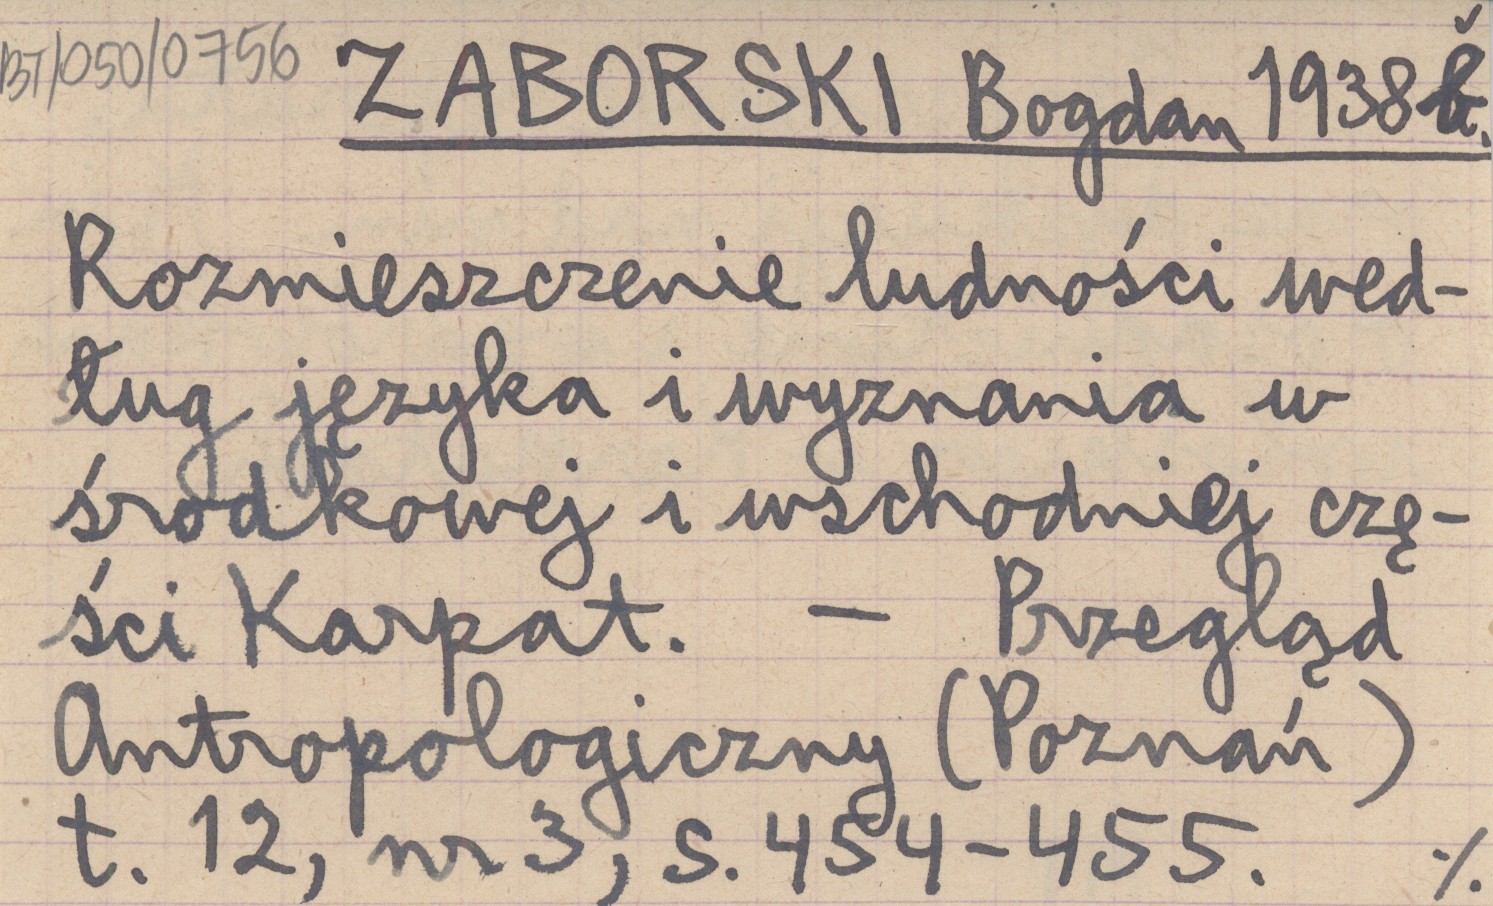 BT/050/0756 ZABORSKI Bogdan 1938
Rozmieszczenie ludności wed-
ług języka i wyznania w
środkowej i wschodniej czę-
ści Karpat. — Przegląd
Antropologiczny (Poznań)
t. 12, nr 3, s. 454-455. ·/.